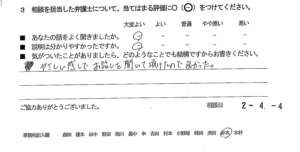 3 相談を担当した弁護士について、当てはまる評価に○をつけてください。
大変よい よい 普通 やや悪い 悪い
■ あなたの話をよく聞きましたか。
■ 説明は分かりやすかったですか。
■ 気がついたことがありましたら、どのようなことでも結構ですからお書きください。
やさしい感じで お話しを聞いて頂けたので良かった。
ご協力ありがとうございました。 相談日 2-4.-4
事務局記入欄 森田 橋本 田中 菊川 吉田 村本 小野塚 鈴木 木村